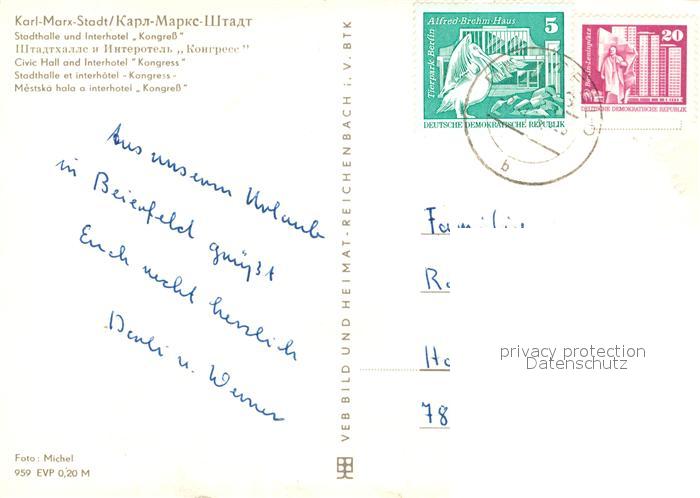 Karl-Marx-Stadt/Карл-Маркс-Штадт
Stadthalle und Interhotel „Kongreß“
Штадтхалле и Интеротель „Конгресс“
Civic Hall and Interhotel “Kongress”
Stadthalle et interhôtel -Kongress-
Městská hala a interhotel „Kongreß“
Aus unserm Urlaub
in Beierfeld grüßt
Euch recht herzlich
u. Werner
Foto: Michel
959 EVP 0,20 M
VEB BILD UND HEIMAT · REICHENBACH i. V. BTK
Alfred-Brehm-Haus
5
Tierpark Berlin
DEUTSCHE DEMOKRATISCHE REPUBLIK
20
Berlin-Leninplatz
DEUTSCHE DEMOKRATISCHE REPUBLIK
b
Familie
78
privacy protection
Datenschutz